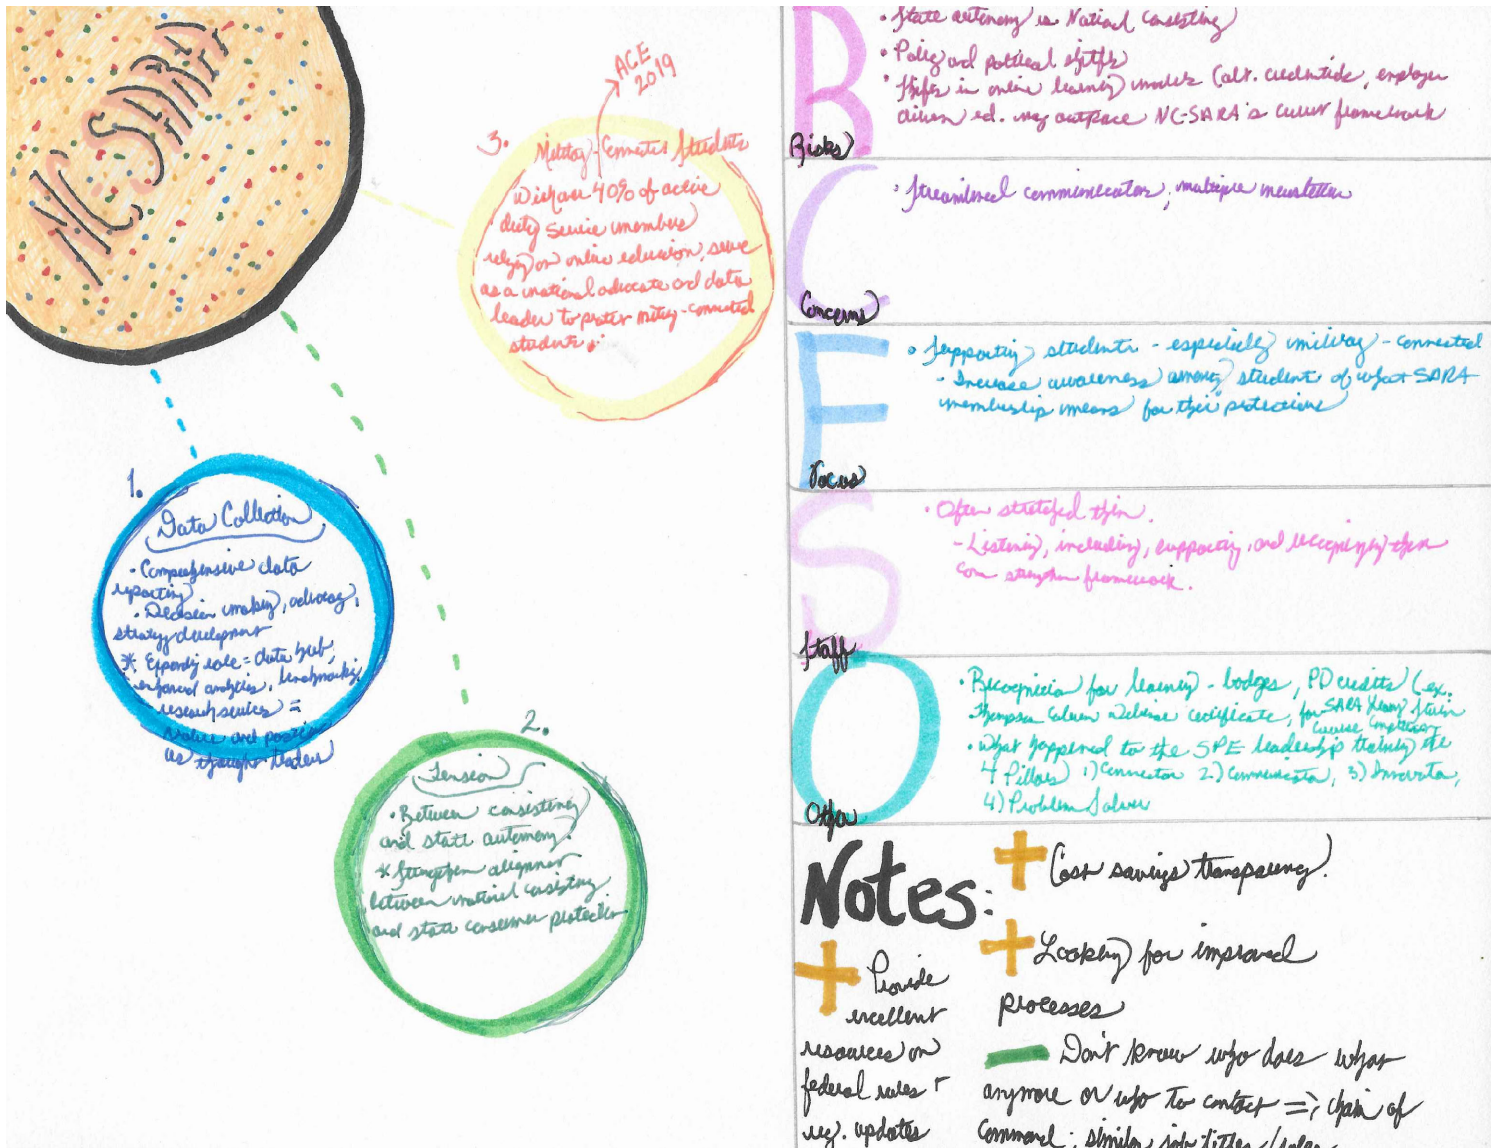 NC-SARA
ACE
2019
3. Military-Connected Students
With over 40% of active
duty service members
relying on online education, serve
as a national advocate and data
leader to protect military-connected
students.
1.
Data Collection
• Comprehensive data
reporting
• Decision making, advocacy,
strategy development
* Expanding role = data hub,
enhanced analytics, benchmarking,
research series =
and position
us thought leaders
2.
Tension
• Between consistency
and state autonomy.
* Strengthen alignment
between national consistency
and state consumer protection
R
Risks
• State autonomy vs National Consistency
• Policy and political shifts
• Shifts in online learning models (alt. credentials, employer
driven ed. may outpace NC-SARA's current framework
C
Concerns
• Streamlined communication; multiple newsletters
F
Focus
• Supporting students - especially military-connected
- Increase awareness among students of what SARA
membership means for their protections
S
Staff
• Often stretched thin.
- Listening, including, supporting, and recognizing them
can strengthen framework.
O
Other
• Recognition for learning - badges, PD credits (ex.
Thompson Coburn webinar certificate, for SARA
course completion
• What happened to the SPE leadership training the
4 Pillars 1) Connector 2.) Communicator, 3) Innovator,
4) Problem Solver
Notes:
+ Cost savings transparency!
+ Looking for improved
processes
+ Provide
excellent
resources on
federal rules +
reg. updates
- Don't know who does what
anymore or who to contact => chain of
command; similar job titles/roles